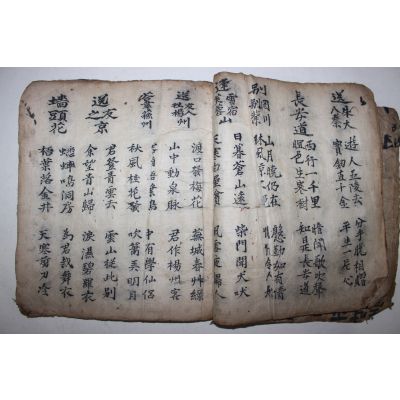 送朱大
入秦
遊人五陵去
寶劍直千金
分手脫相贈
平生一片心
長安道
西行一千里
暝色生寒樹
暗聞歌吹聲
知是長安道
別輞川
別業
山月曉仍在
慇懃如有情
雪宿
山
日暮蒼山遠
柴門聞犬吠
送友人
楊州
渡口發梅花
山中動泉脉
蕪城春艸綠
君作楊州客
蘇州
秋風桂花發
中有學仙侶
吹簫弄明月
送友
之京
君登青雲去
余望青山歸
雲山從此別
淚濕碧蘿衣
墻頭花
蟋蟀鳴洞房
梧葉落金井
爲君裁舞衣
天寒剪刀冷